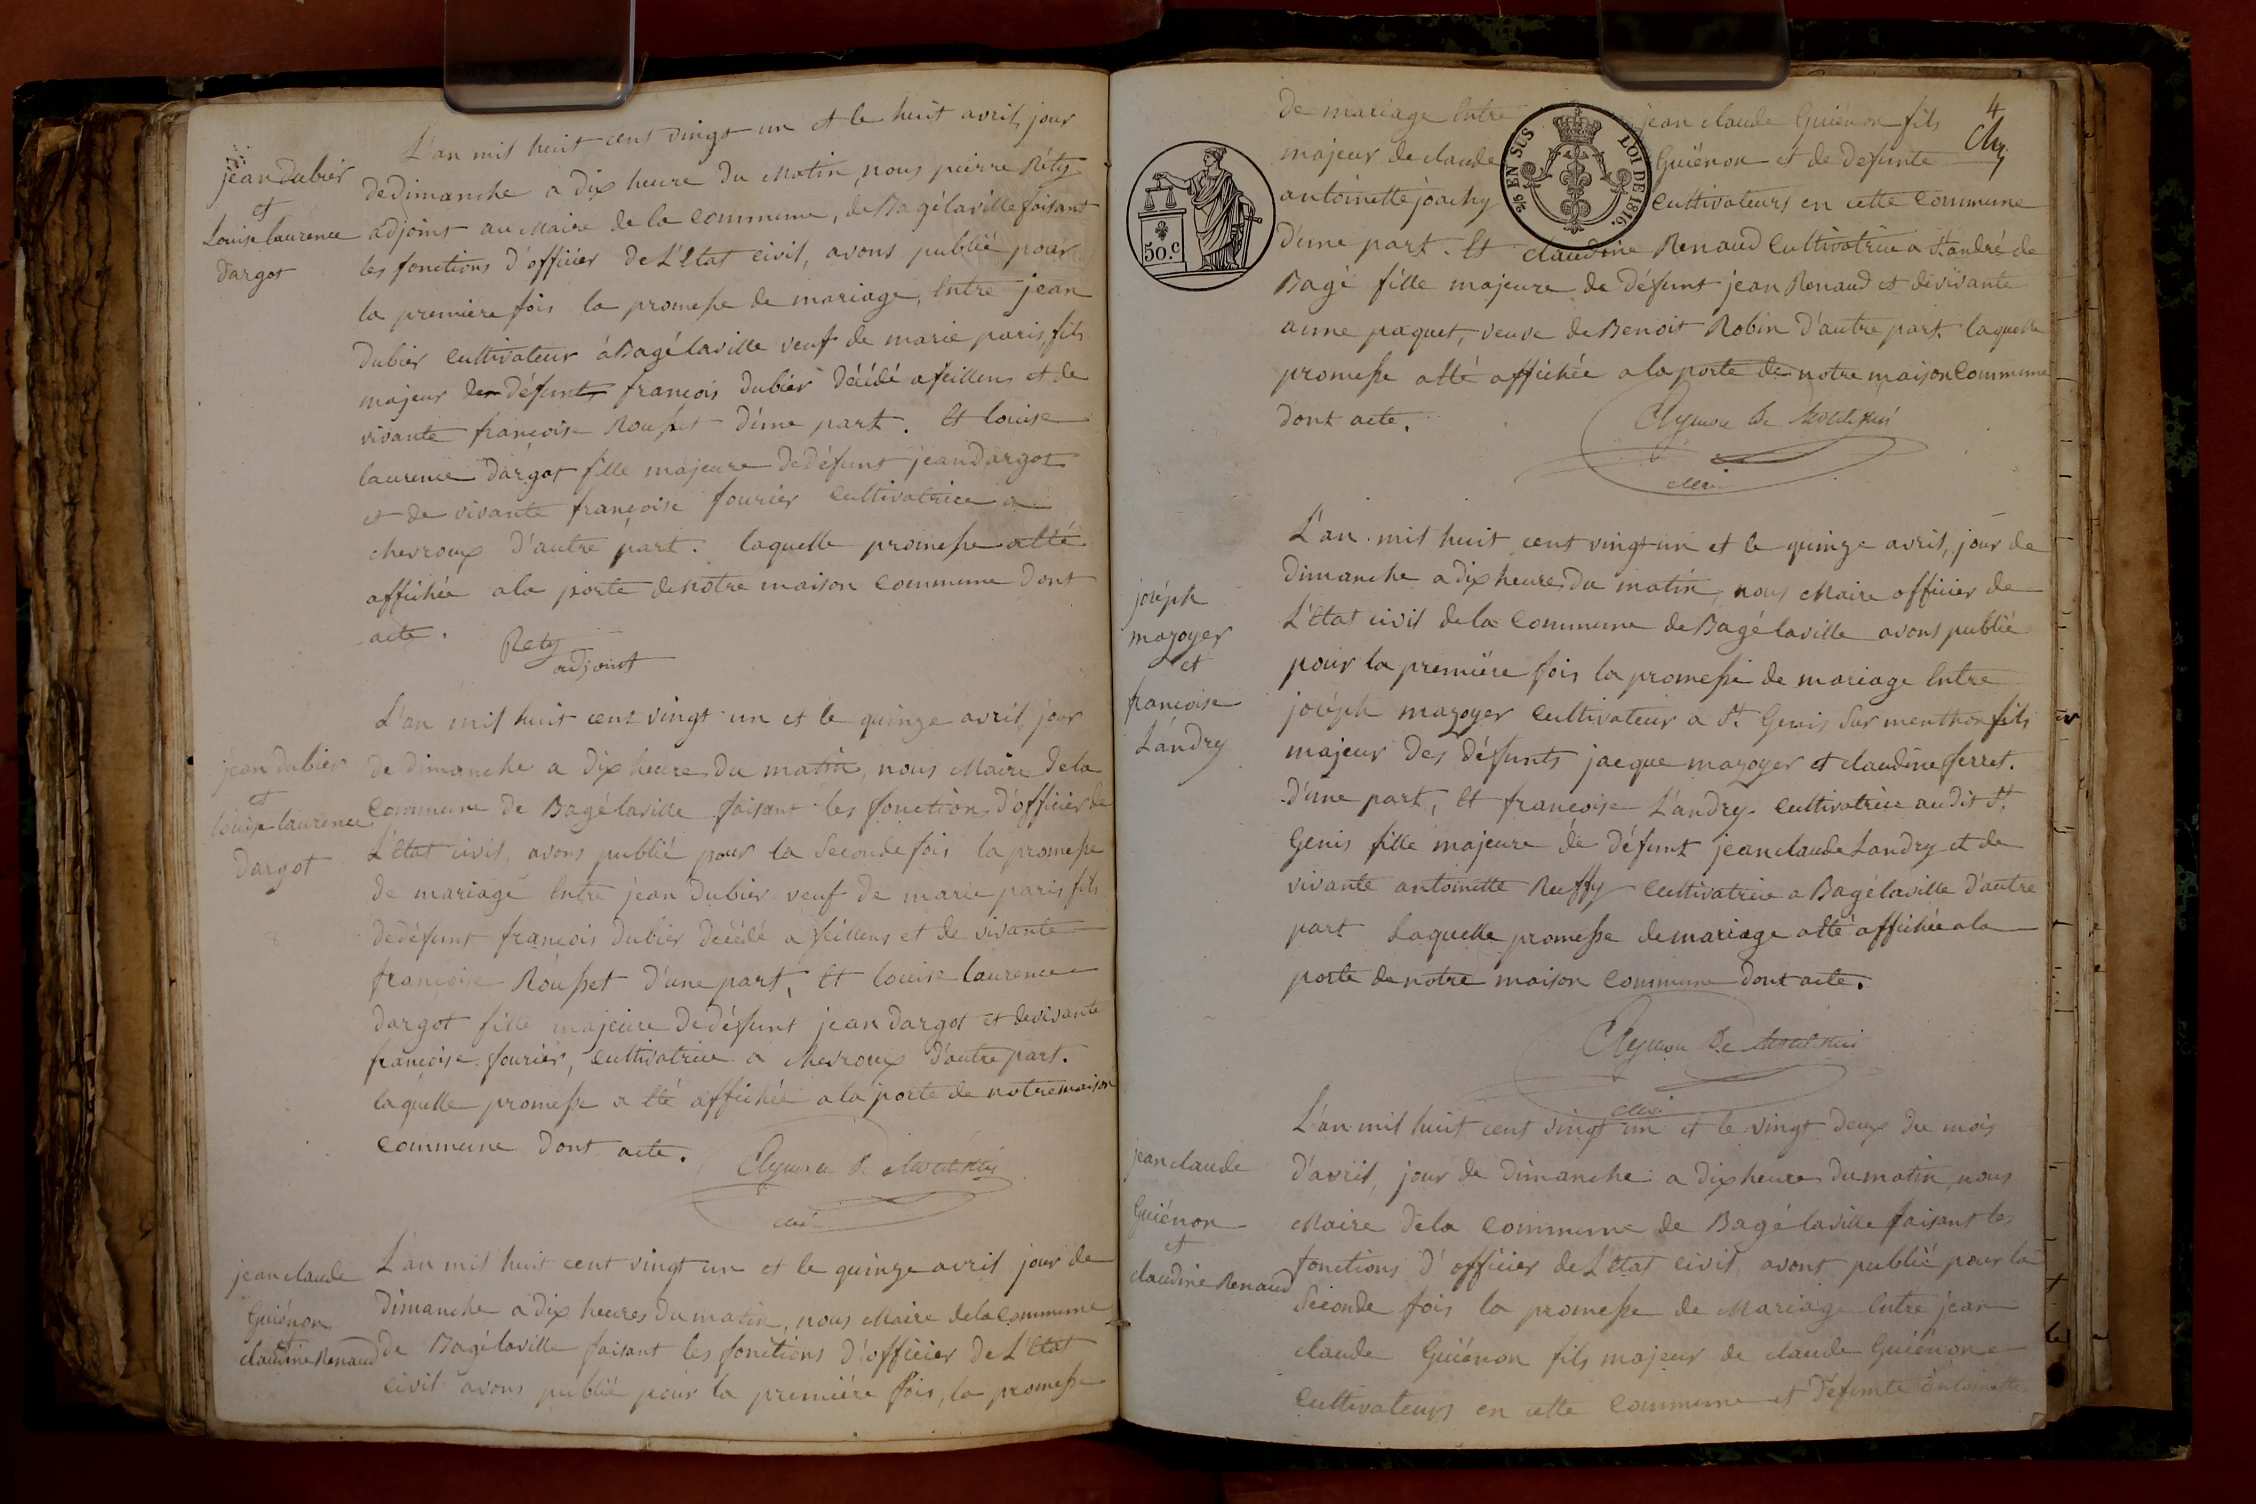 jean dubier
et
Louise laurence
dargot
L'an mil huit cent vingt un et le huit avril, jour
de dimanche a dix heure du Matin, nous pierre Réty
adjoint au Maire de la Commune, de Bagélaville faisant
les fonctions d'officier de L'Etat civil, avons publié pour
la premiere fois la promesse de mariage, Entre jean
dubier Cultivateur á Bagélaville veuf de marie paris, fils
majeur de défunt françois dubier décédé a feillens et de
vivante françoise Rousset d'une part. Et louise
laurence dargot fille majeure de défunt jean dargot
et de vivante françoise fourier Cultivatrice a
chevroux d'autre part. laquelle promesse a été
affichée a la porte de notre maison Commune Dont
acte.
Rety
adjoint
jean dubier
et
louise laurence
Dargot
L'an mil huit cent vingt un et le quinze avril, jour
de dimanche a dix heure du matin, nous Maire de la
Commune de Bagélaville faisant les fonction d'officier de
L'Etat civil, avons publié pour la Seconde fois la promesse
de mariage Entre jean dubier veuf de marie paris fils
de défunt françois dubier décédé a feillens et de vivante
françoise Rousset d'une part, Et louise laurence
dargot fille majeure de défunt jean dargot et de vivante
françoise fourier, Cultivatrice a chevroux d'autre part.
laquelle promesse a Eté affichée a la porte de notre maison
Commune Dont acte.
jean claude
Guiénon
et
claudine Renaud
L'an mil huit cent vingt un et le quinze avril jour de
Dimanche a dix heures du matin, nous Maire de la Commune
de Bagélaville faisant les fonctions d'officier de L'Etat
civil avons publié pour la premiére fois, la promesse
4
50.c
26 EN SUS LOI DE 1816.
de mariage Entre jean claude Guiénon fils
majeur de claude Guiénon et de défunte
antoinette joachy Cultivateurs en cette Commune
d'une part. Et claudine Renaud Cultivatrice a St. andré de
Bagé fille majeure de défunt jean Renaud et de vivante
anne paquet, veuve de Benoit Robin d'autre part. laquelle
promesse a été affichée a la porte de notre maison Commune
dont acte.
joséph
mazoyer
et
françoise
Landry
L'an mil huit cent vingt un et le quinze avril, jour de
dimanche a dix heures du matin, nous Maire officier de
L'Etat civil de la Commune de Bagélaville avons publié
pour la premiére fois la promesse de mariage Entre
joséph mazoyer Cultivateur a St. Genis Sur menthon fils
majeur des défunts jacque mazoyer et claudine ferret.
d'une part, Et françoise Landry Cultivatrice audit St.
Genis fille majeure de défunt jean claude Landry et de
vivante antoinette Ruffy Cultivatrice a Bagélaville d'autre
part Laquelle promesse de mariage a été affichée a la
porte de notre maison Commune dont acte.
jean claude
Guiénon
et
claudine Renaud
L'an mil huit cent vingt un et le vingt deux du mois
d'avril, jour de dimanche a dix heures du matin, nous
Maire de la Commune de Bagélaville faisant les
fonctions d'officier de L'Etat civil, avons publié pour la
Seconde fois la promesse de Mariage Entre jean
claude Guiénon fils majeur de claude Guiénon
Cultivateurs en cette Commune et défunte antoinette